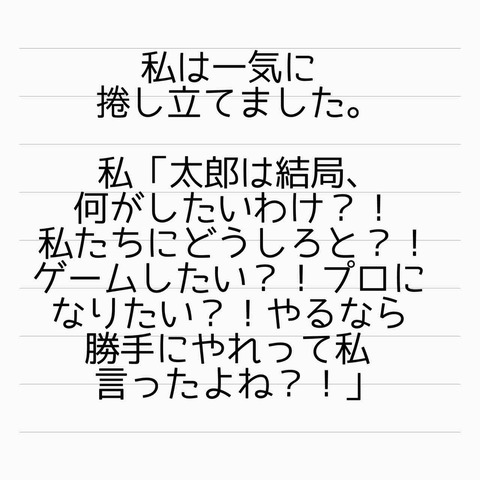 私は一気に
捲し立てました。
私「太郎は結局、
何がしたいわけ？！
私たちにどうしろと？！
ゲームしたい？！プロに
なりたい？！やるなら
勝手にやれって私
言ったよね？！」